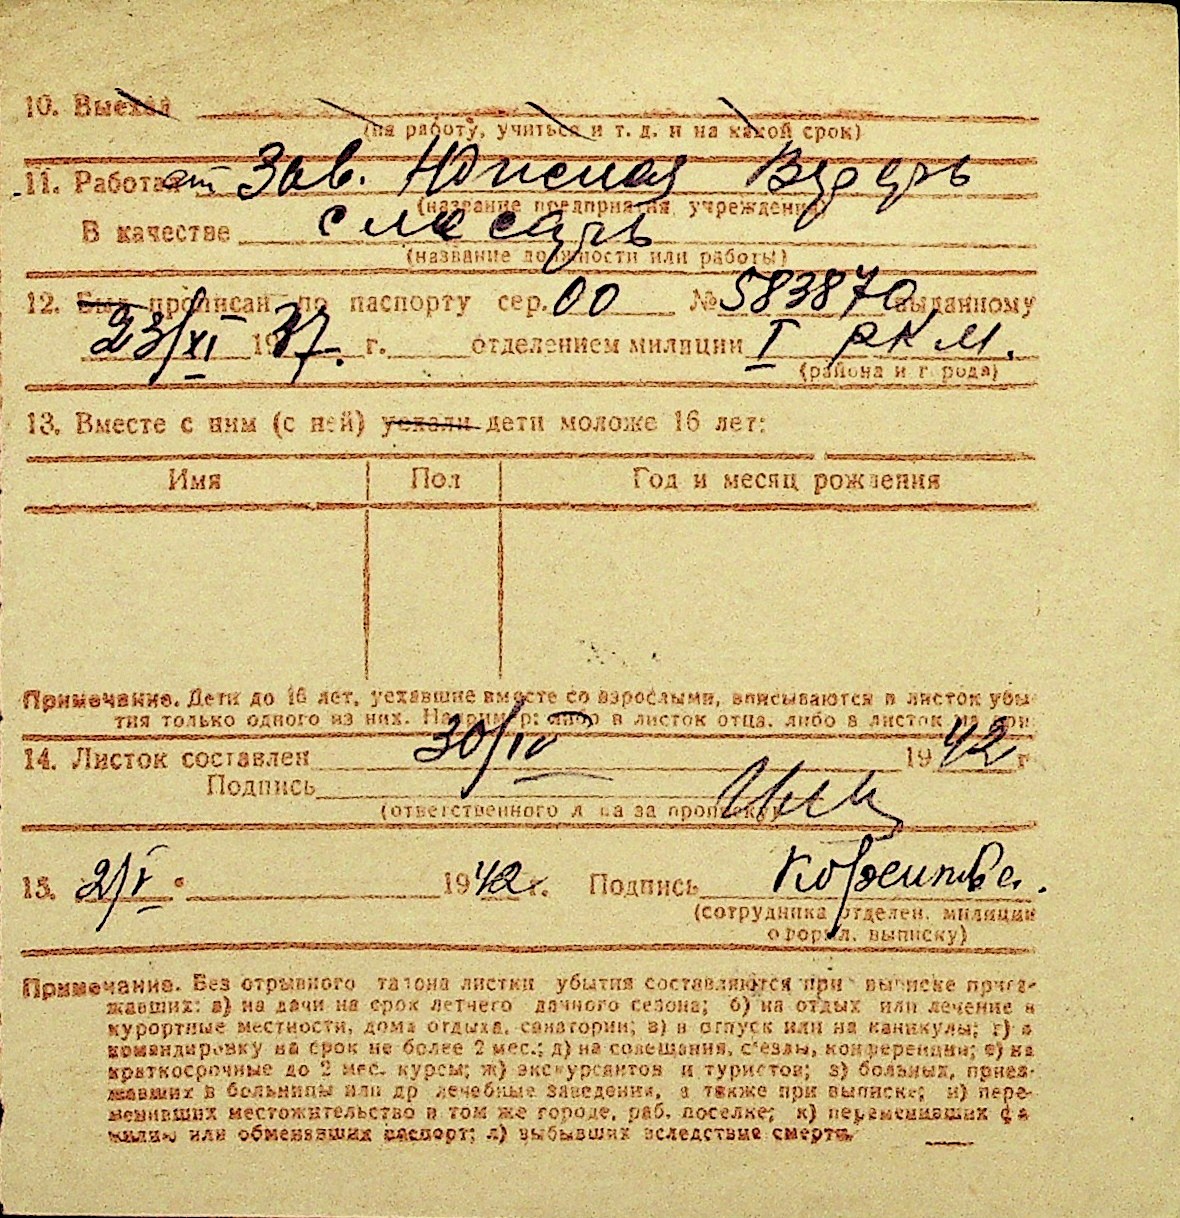 10. Выехал
(на работу, учиться и т. д. и на какой срок)
11. Работает Зав.
(название предприятия, учреждения)
В качестве слесарь
(название должности или работы)
12. Был прописан по паспорту сер. 00 № 583870 выданному
23/XI 1937 г. отделением милиции I РКМ.
(района и города)
13. Вместе с ним (с ней) уехали дети моложе 16 лет:
Имя Пол Год и месяц рождения
Примечание. Дети до 16 лет, уехавшие вместе со взрослыми, вписываются в листок убы-
тия только одного из них. Например: либо в листок отца, либо в листок
14. Листок составлен 30/IV 1942 г
Подпись
(ответственного лица за прописку)
15. 2/V 1942 г. Подпись
(сотрудника отделен. милиции
оформл. выписку)
Примечание. Без отрывного талона листки убытия составляются при выписке приез-
жавших: а) на дачи на срок летнего дачного сезона; б) на отдых или лечение в
курортные местности, дома отдыха, санатории; в) в отпуск или на каникулы; г) в
командировку на срок не более 2 мес.; д) на совещания, съезды, конференции; е) на
краткосрочные до 2 мес. курсы; ж) экскурсантов и туристов; з) больных, приез-
жавших в больницы или др лечебные заведения, а также при выписке; и) пере-
менивших местожительство в том же городе, раб. поселке; к) переменивших фа
милию или обменявших паспорт; л) выбывших вследствие смерти.